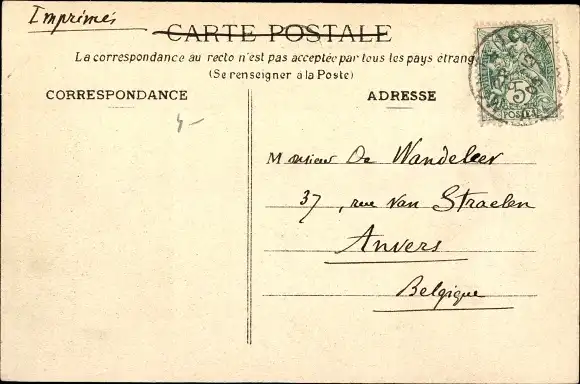 Imprimés
CARTE POSTALE
La correspondance au recto n'est pas acceptée par tous les pays étrang
(Se renseigner à la Poste)
CORRESPONDANCE
ADRESSE
5
POSTES
5-
Monsieur De Wandeleer
37, rue Van Straelen
Anvers
Belgique